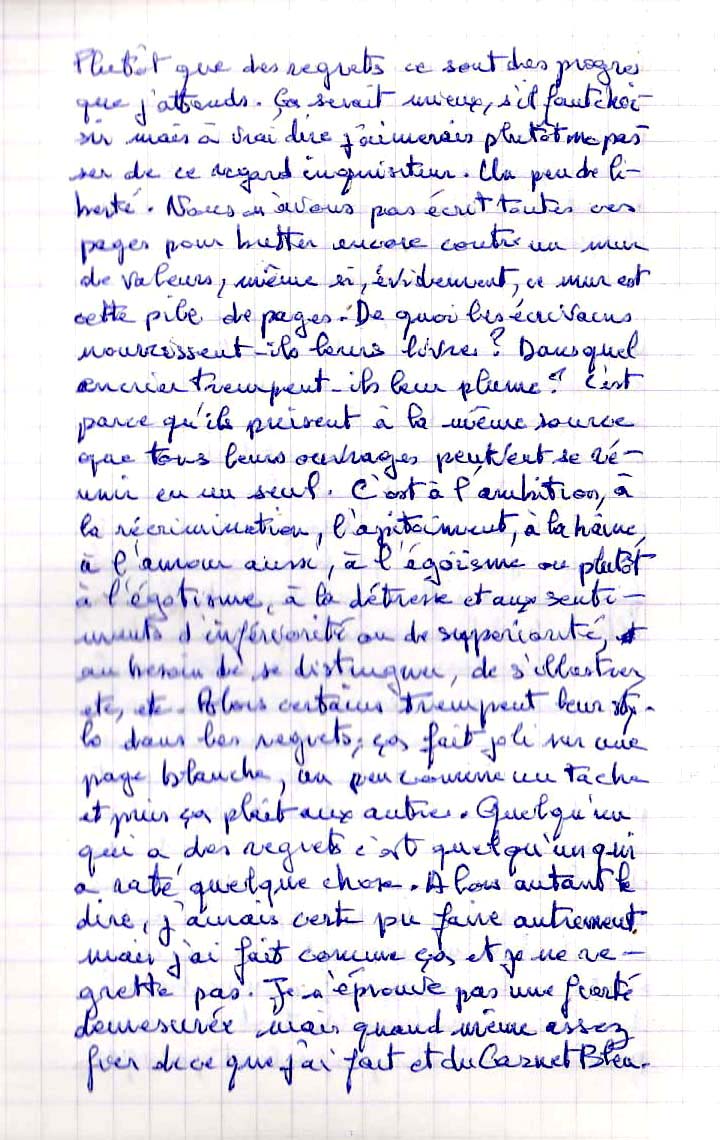 Plutôt que des regrets ce sont des progrès
que j'attends. Ça serait mieux, s'il faut choi-
sir mais à vrai dire j'aimerais plutôt me pas
ser de ce regard inquisiteur. Un peu de li-
berté. Nous n'avons pas écrit toutes ces
pages pour butter encore contre un mur
de valeurs, même si, évidement, ce mur est
cette pile de pages. De quoi les écrivains
nourrissent-ils leurs livres? Dans quel
encrier trempent-ils leur plume? C'est
parce qu'ils puisent à la même source
que tous leurs ouvrages peuvent se ré-
unir en un seul. C'est à l'ambition, à
la récrimination, l'apitoiment, à la haine,
à l'amour aussi, à l'égoïsme ou plutôt
à l'égotisme, à la détresse et aux senti-
ments d'infériorité ou de suppériorité, et
au besoin de se distinguer, de s'illustrer,
etc, etc. Alors certains trempent leur sty-
lo dans les regrets; ça fait joli sur une
page blanche, un peu comme un tâche
et puis ça plaît aux autres. Quelqu'un
qui a des regrets c'est quelqu'un qui
a raté quelque chose. Alors autant le
dire, j'aurais certe pu faire autrement
mais j'ai fait comme ça et je ne re-
grette pas. Je n'éprouve pas une fierté
demesurée mais quand même assez
fier de ce que j'ai fait et du Carnet Bleu.